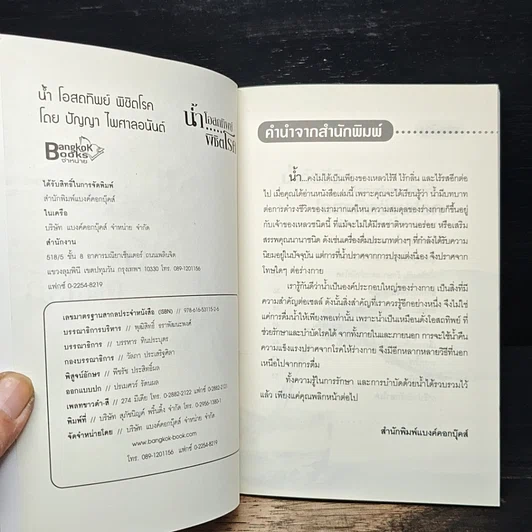 น้ำ โอสถทิพย์ พิชิตโรค
โดย ปัญญา ไพศาลอนันต์
น้ำ โอสถทิพย์
พิชิตโรค
Bangkok
Books
จำหน่าย
ได้รับสิทธิ์ในการจัดพิมพ์
สำนักพิมพ์แบงค์คอกบุ๊คส์
ในเครือ
บริษัท แบงค์คอกบุ๊คส์ จำหน่าย จำกัด
สำนักงาน
518/5 ชั้น 8 อาคารมณียาเซ็นเตอร์ ถนนเพลินจิต
แขวงลุมพินี เขตปทุมวัน กรุงเทพฯ 10330 โทร 089-1201156
แฟกซ์ 0-2254-8219
เลขมาตรฐานสากลประจำหนังสือ (ISBN) // 978-616-53115-2-6
บรรณาธิการบริหาร // พุฒิสิทธิ์
บรรณาธิการ // บรรหาร ทินประมุตร
กองบรรณาธิการ // วัลภา ประเสริฐศิลา
พิสูจน์อักษร // พีรรัช ประสิทธิ์ผล
ออกแบบปก // ปรเมศวร์ รัตนผล
เพลทขาวดำ-สี // 274 มีเดีย โทร. 0-2882-2122, แฟกซ์ 0-2882-2
พิมพ์ที่ // บริษัท สุภัชนิญค์ พริ้นติ้ง จำกัด โทร. 0-2956-1380-1
จัดจำหน่ายโดย // บริษัท แบงค์คอกบุ๊คส์ จำหน่าย จำกัด
www.bangkok-book.com
โทร. 089-1201156 แฟกซ์ 0-2254-8219
คำนำจากสำนักพิมพ์
น้ำ...คงไม่ได้เป็นเพียงของเหลวไร้สี ไร้กลิ่น และไร้รสอีกต่อ
ไป เมื่อคุณได้อ่านหนังสือเล่มนี้ เพราะคุณจะได้เรียนรู้ว่า น้ำมีบทบาท
ต่อการดำรงชีวิตของเรามากแค่ไหน ความสมดุลของร่างกายก็ขึ้นอยู่
กับเจ้าของเหลวชนิดนี้ ที่แม้จะไม่ได้มีรสชาติหวานอร่อย หรือเสริม
สรรพคุณนานาชนิด ดังเช่นเครื่องดื่มประเภทต่างๆ ที่กำลังได้รับความ
นิยมอยู่ในปัจจุบัน แต่การที่น้ำปราศจากการปรุงแต่งนี่เอง จึงปราศจาก
โทษใดๆ ต่อร่างกาย
เรารู้กันดีว่าน้ำเป็นองค์ประกอบใหญ่ของร่างกาย เป็นสิ่งที่มี
ความสำคัญต่อเซลล์ ดังนั้นสิ่งสำคัญที่เราควรรู้ซึกอย่างหนึ่ง จึงไม่ใช่
แค่การดื่มน้ำให้เพียงพอเท่านั้น เพราะน้ำเป็นเหมือนดังโอสถทิพย์ ที่
ช่วยรักษาและบำบัดโรคได้ จากทั้งภายในและภายนอก การจะใช้น้ำคืน
ความแข็งแรงปราศจากโรคให้ร่างกาย จึงมีอีกหลากหลายวิธีที่นอก
เหนือไปจากการดื่ม
ทั้งความรู้ในการรักษา และการบำบัดด้วยน้ำได้รวบรวมไว้
แล้ว เพียงแค่คุณพลิกหน้าต่อไป
สำนักพิมพ์แบงค์คอกบุ๊คส์